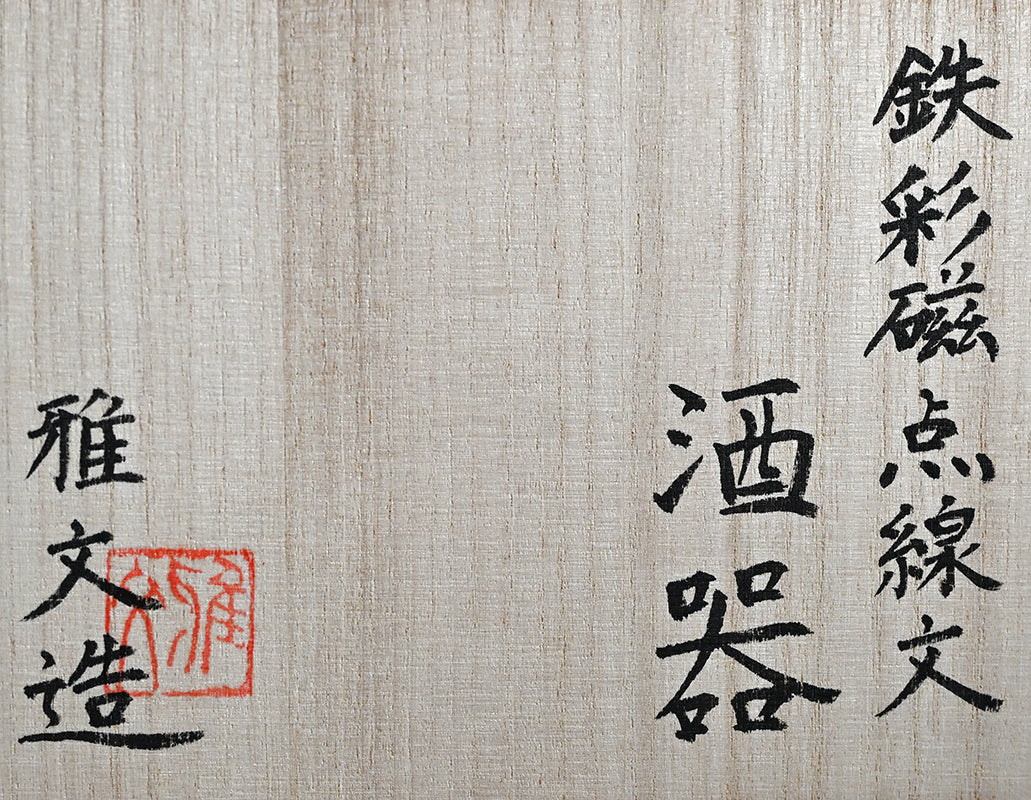 鉄彩磁点線文
酒器
雅文造
雅文